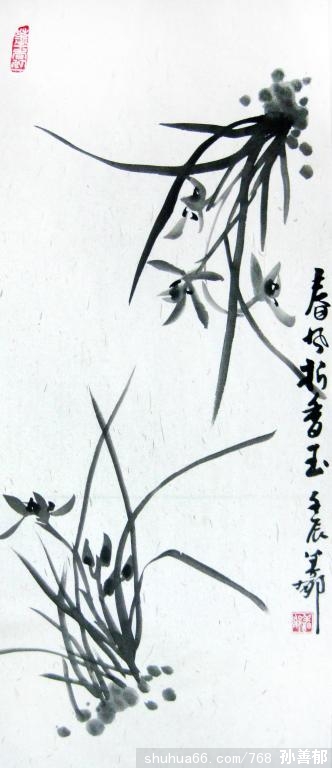 春风折香玉 壬辰 善郁
shuhua66.com/768 孙善郁